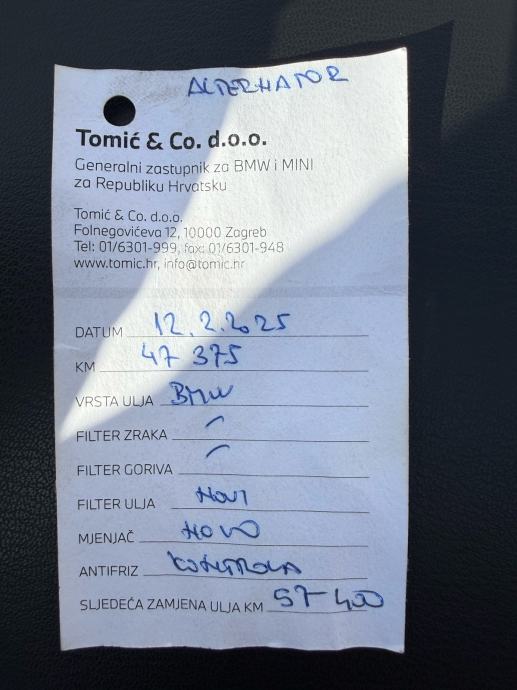 ALTERNATOR
Tomić & Co. d.o.o.
Generalni zastupnik za BMW i MINI
za Republiku Hrvatsku
Tomić & Co. d.o.o.
Folnegovićeva 12, 10000 Zagreb
Tel: 01/6301-999, fax: 01/6301-948
www.tomic.hr, info@tomic.hr
DATUM 12.2.2025
KM 47 375
VRSTA ULJA BMW
FILTER ZRAKA –
FILTER GORIVA –
FILTER ULJA NOVI
MJENJAČ NOVO
ANTIFRIZ KONTROLA
SLJEDEĆA ZAMJENA ULJA KM 57 400